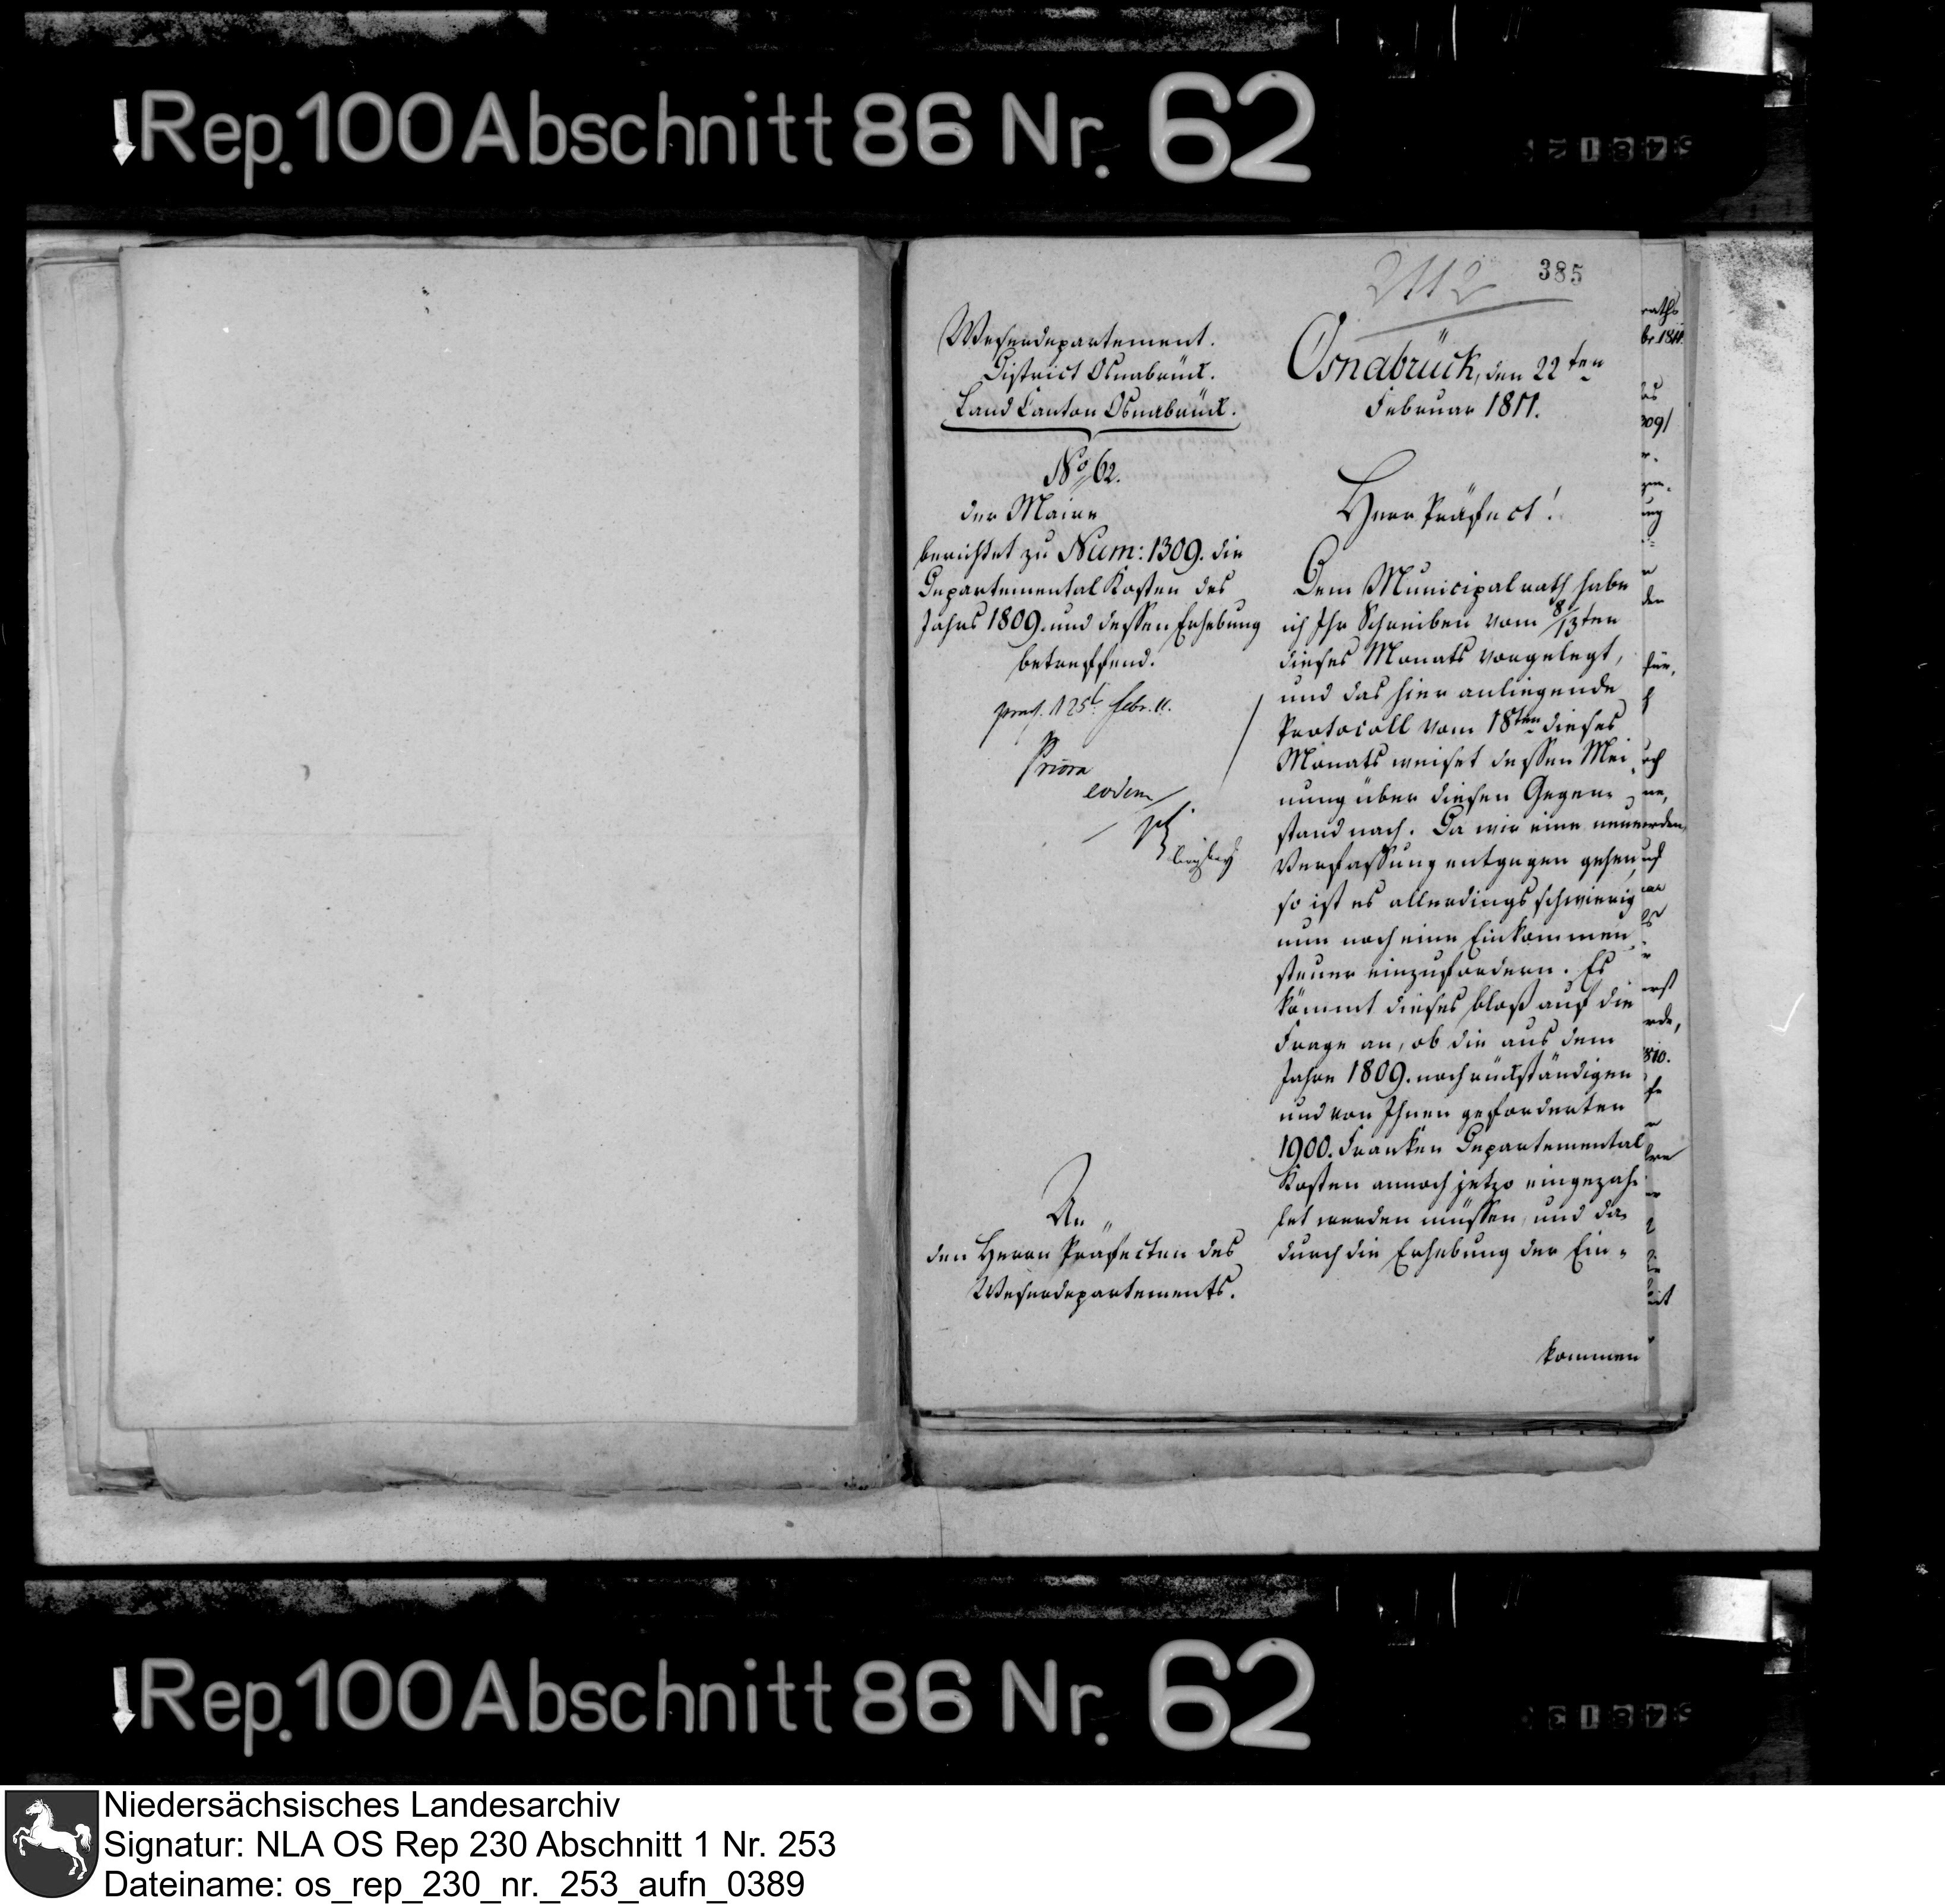 Rep. 100 Abschnitt 86 Nr. 62
385
2112
Weserdepartement.
District Osnabrück.
Land Canton Osnabrück.
No 62.
der Maire
berichtet zu Num: 1309. die
Departemental Kosten des
Jahrs 1809. und dessen Erhebung
betreffend.
praes. 1 25t. Febr. 11.
Priora
eodem
An
den Herrn Präfecten des
Weserdepartements.
Osnabrück, den 22ten
Februar 1811.
Herr Präfect!
Dem Municipalrath habe
ich Ihr Schreiben vom 8/13ten
dieses Monats vorgelegt,
und das hier anliegende
Protocoll vom 18ten dieses
Monats weiset dessen Mei
nung über diesen Gegen-
stand nach. Da wir eine neue
Verfassung entgegen gehen,
so ist es allerdings schwierig
nun noch eine Einkommen
steuer einzufordern. Es
kömmt dieses bloß auf die
Frage an, ob die aus dem
Jahre 1809. noch rückständigen
und von Ihnen geforderten
1900. Franken Departemental
Kosten annoch jetzo eingezah-
let werden müssen, und da
durch die Erhebung der Ein-
kommen
Rep. 100 Abschnitt 86 Nr. 62
Niedersächsisches Landesarchiv
Signatur: NLA OS Rep 230 Abschnitt 1 Nr. 253
Dateiname: os_rep_230_nr._253_aufn_0389